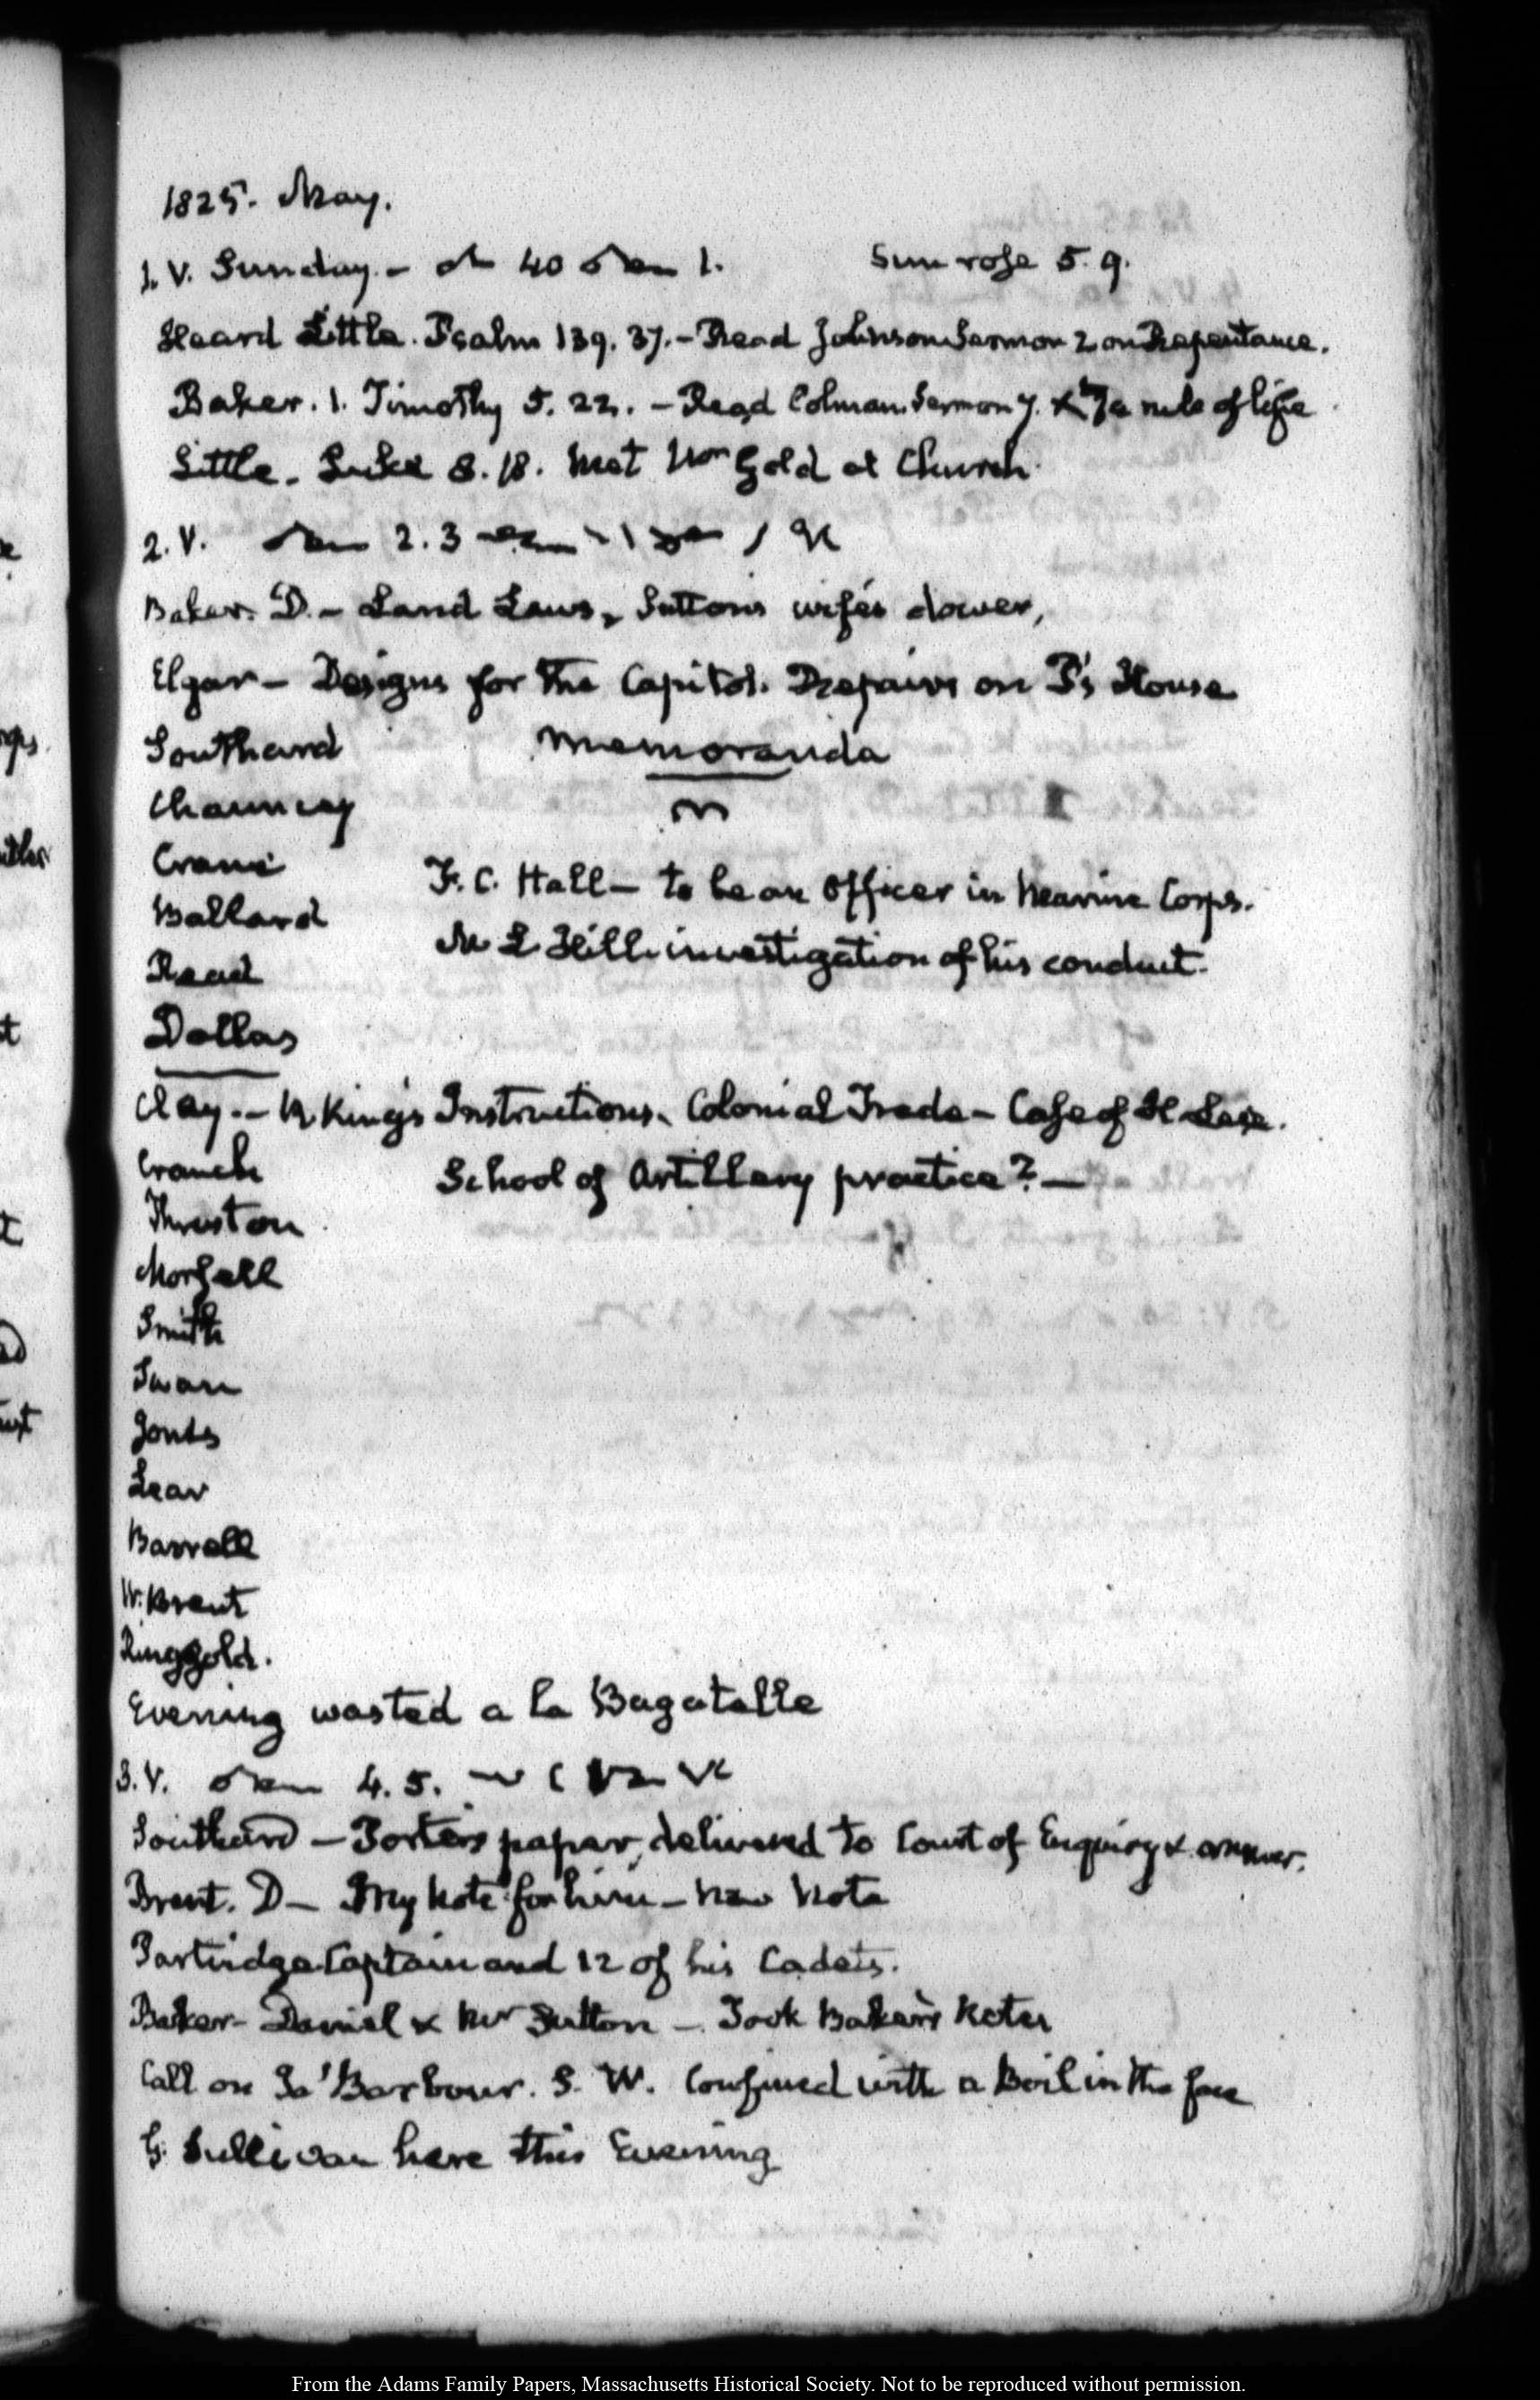 1825. May.
1. V. Sunday. - 40 1. Sun rose 5. 9.
Heard Little. Psalm 139. 37. - Read Johnson Sermon 2 on Repentance.
Baker. 1. Timothy 5. 22. - Read Colman. Sermon 7. rule of life
Little. Luke 8. 18. Met Gold at Church.
2. V. 2. 3
Baker. D. - Land Laws, Sutton's wife's dower,
Elgar - Designs for the Capitol. Repairs on P's House
Southard Memoranda
Chauncey
Crane
F. C. Hall - to be an Officer in Marine Corps.
Ballard
M L Hill investigation of his conduct.
Read
Dallas
Clay. - R King's Instructions. Colonial Trade - Case of
Cranch School of Artillery practice? -
Thruston
Morsell
Smith
Swan
Jones
Lear
Barrell
W. Brent
Ringgold.
Evening wasted a la Bagatelle
3. V. 4. 5.
Southard - Porter's paper, delivered to Court of Enquiry & answer.
Brent. D - My Note for him - New Note
Partridge Captain and 12 of his Cadets.
Baker - Daniel & Mr Sutton - Took Baker's Notes
Call on Ja' Barbour. S. W. Confined with a Boil in the face
G. Sullivan here this Evening
From the Adams Family Papers, Massachusetts Historical Society. Not to be reproduced without permission.